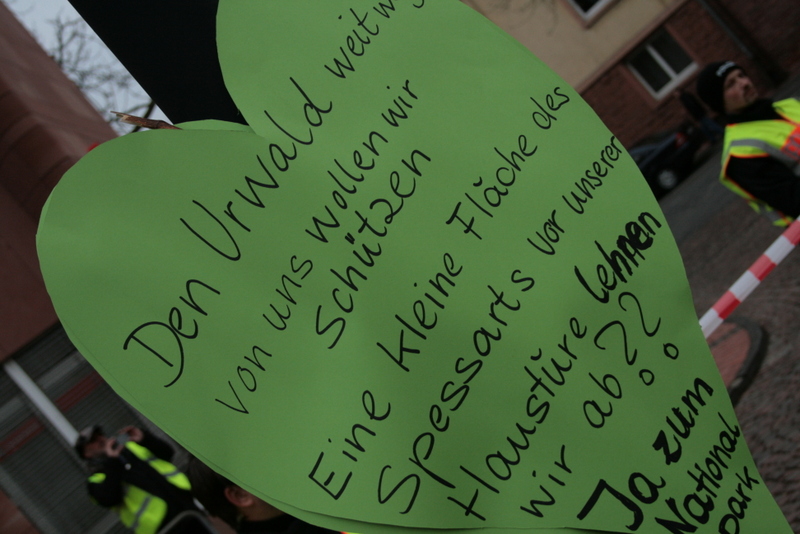 Den Urwald weit weg
von uns wollen wir
Schützen
Eine kleine Fläche des
Spessarts vor unserer
Haustüre lehnen
wir ab??
Ja zum
National
park